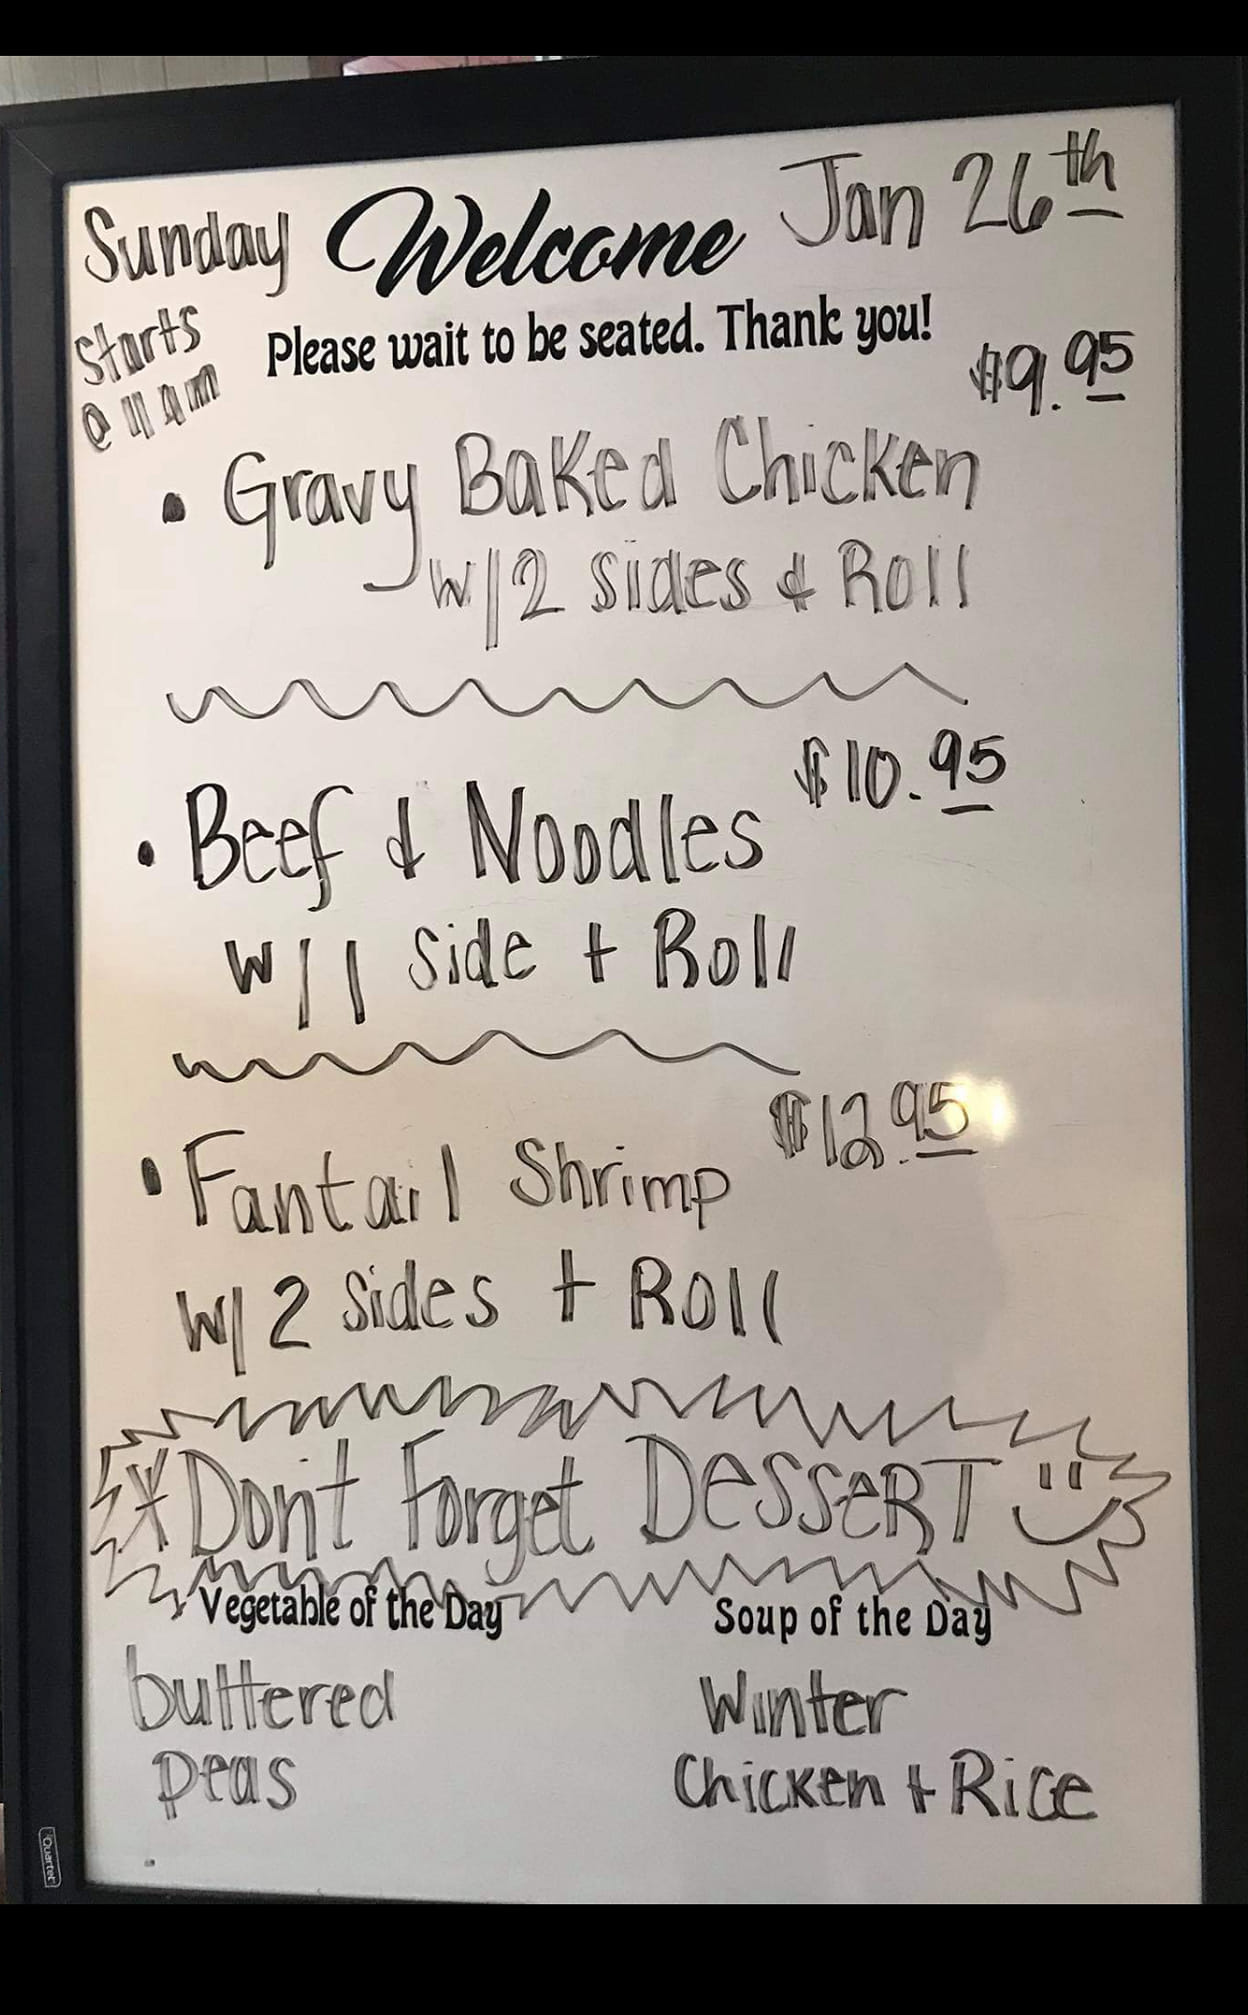 Sunday Welcome Jan 26th
Starts
@ 11 Am
Please wait to be seated. Thank you!
$9.95
• Gravy Baked Chicken
w/2 sides & Roll
$10.95
• Beef & Noodles
w/1 Side + Roll
$12.95
• Fantail Shrimp
w/2 Sides + Roll
* Don't Forget DESSERT
Vegetable of the Day
buttered
peas
Soup of the Day
Winter
Chicken + Rice
Quartet